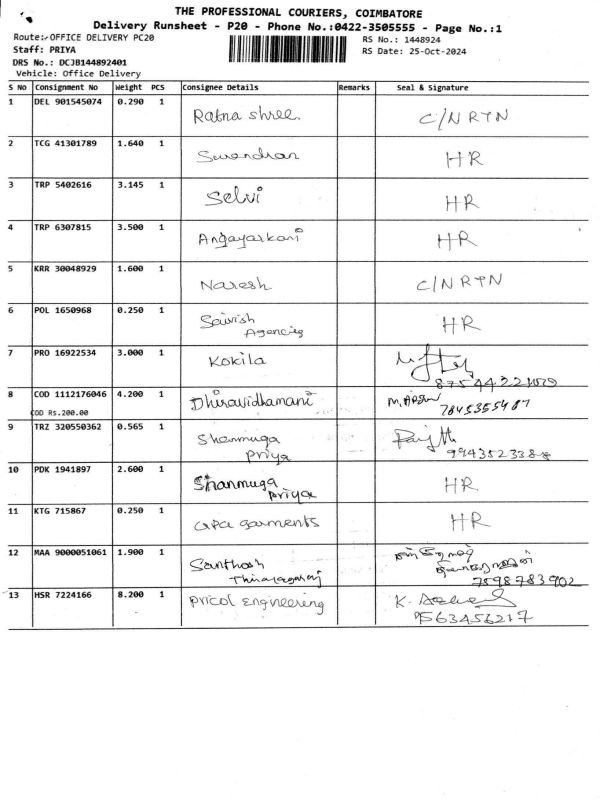 THE PROFESSIONAL COURIERS, COIMBATORE
Delivery Runsheet - P20 - Phone No.:0422-3505555 - Page No.:1
Route:-OFFICE DELIVERY PC20 RS No.: 1448924
Staff: PRIYA RS Date: 25-Oct-2024
DRS No.: DCJB144892401
Vehicle: Office Delivery
S No Consignment No Weight PCS Consignee Details Remarks Seal & Signature
1 DEL 901545074 0.290 1 Ratna shree. C/N RTN
2 TCG 41301789 1.640 1 Surendran HR
3 TRP 5402616 3.145 1 Selvi HR
4 TRP 6307815 3.500 1 Angayarkani HR
5 KRR 30048929 1.600 1 Naresh C/N RTN
6 POL 1650968 0.250 1 HR
Agencies
7 PRO 16922534 3.000 1 Kokila
8 COD 1112176046 4.200 1 Dhiravidhamani
COD Rs.200.00 7845355487
9 TRZ 320550362 0.565 1 Shanmuga
Priya
10 PDK 1941897 2.600 1 Shanmuga HR
Priya
11 KTG 715867 0.250 1 garments HR
12 MAA 9000051061 1.900 1 Santhosh
7598783902
13 HSR 7224166 8.200 1 Pricol Engineering
9563456217